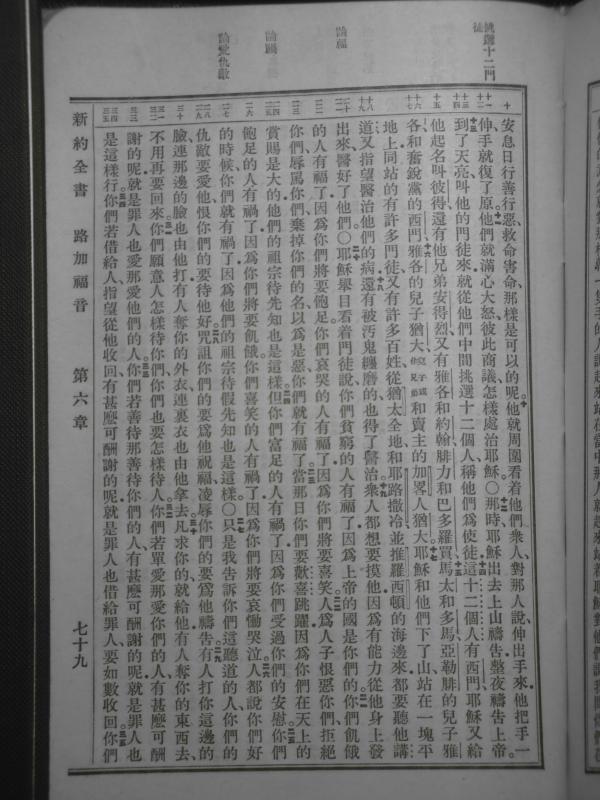 挑選十二門徒
論福
論禍
論愛仇敵
安息日行善行惡救命害命那樣是可以的呢他就周圍看着他們衆人對那人說伸出手來他把手一
伸手就復了原他們就滿心大怒彼此商議怎樣處治耶穌○那時耶穌出去上山禱告整夜禱告上帝
到了天亮叫他的門徒來就從他們中間挑選十二個人稱他們爲使徒這十二個人有西門耶穌又給
他起名叫彼得還有他兄弟安得烈又有雅各和約翰腓力和巴多羅買馬太和多馬亞勒腓的兒子雅
各和奮銳黨的西門雅各的兒子猶大兒子或作兄弟和賣主的加畧人猶大耶穌和他們下了山站在一塊平
地上同站的有許多門徒又有許多百姓從猶太全地和耶路撒冷並推羅西頓的海邊來都要聽他講
道又指望醫治他們的病還有被汚鬼纏磨的也得了醫治衆人都想要摸他因爲有能力從他身上發
出來醫好了他們○耶穌舉目看着門徒說你們貧窮的人有福了因爲上帝的國是你們的你們飢餓
的人有福了因爲你們將要飽足你們哀哭的人有福了因爲你們將要喜笑人爲人子恨惡你們拒絕
你們辱罵你們棄掉你們的名以爲是惡你們就有福了當那日你們要歡喜跳躍因爲你們在天上的
賞賜是大的他們的祖宗待先知也是這樣但你們富足的人有禍了因爲你們受過你們的安慰你們
飽足的人有禍了因爲你們將要飢餓你們喜笑的人有禍了因爲你們將要哀慟哭泣人都說你們好
的時候你們就有禍了因爲他們的祖宗待假先知也是這樣○只是我告訴你們這聽道的人你們的
仇敵要愛他恨你們的要待他好咒詛你們的要爲他祝福凌辱你們的要爲他禱告有人打你這邊的
臉連那邊的臉也由他打有人奪你的外衣連裏衣也由他拿去凡求你的就給他有人奪你的東西去
不用再要回來你們願意人怎樣待你們你們也要怎樣待人你們若單愛那愛你們的人有甚麽可酬
謝的呢就是罪人也愛那愛他們的人你們若善待那善待你們的人有甚麽可酬謝的呢就是罪人也
是這樣行你們若借給人指望從他收回有甚麽可酬謝的呢就是罪人也借給罪人要如數收回你們
新約全書 路加福音 第六章 七十九